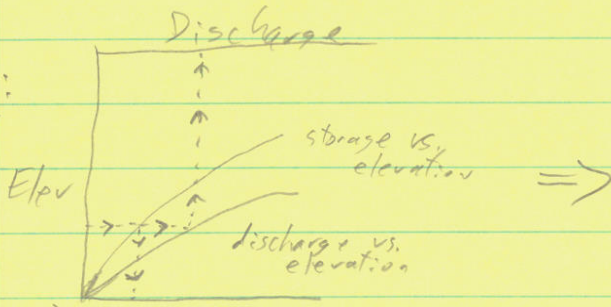 Discharge
:
storage vs.
elevation
Elev
=>
discharge vs.
elevation